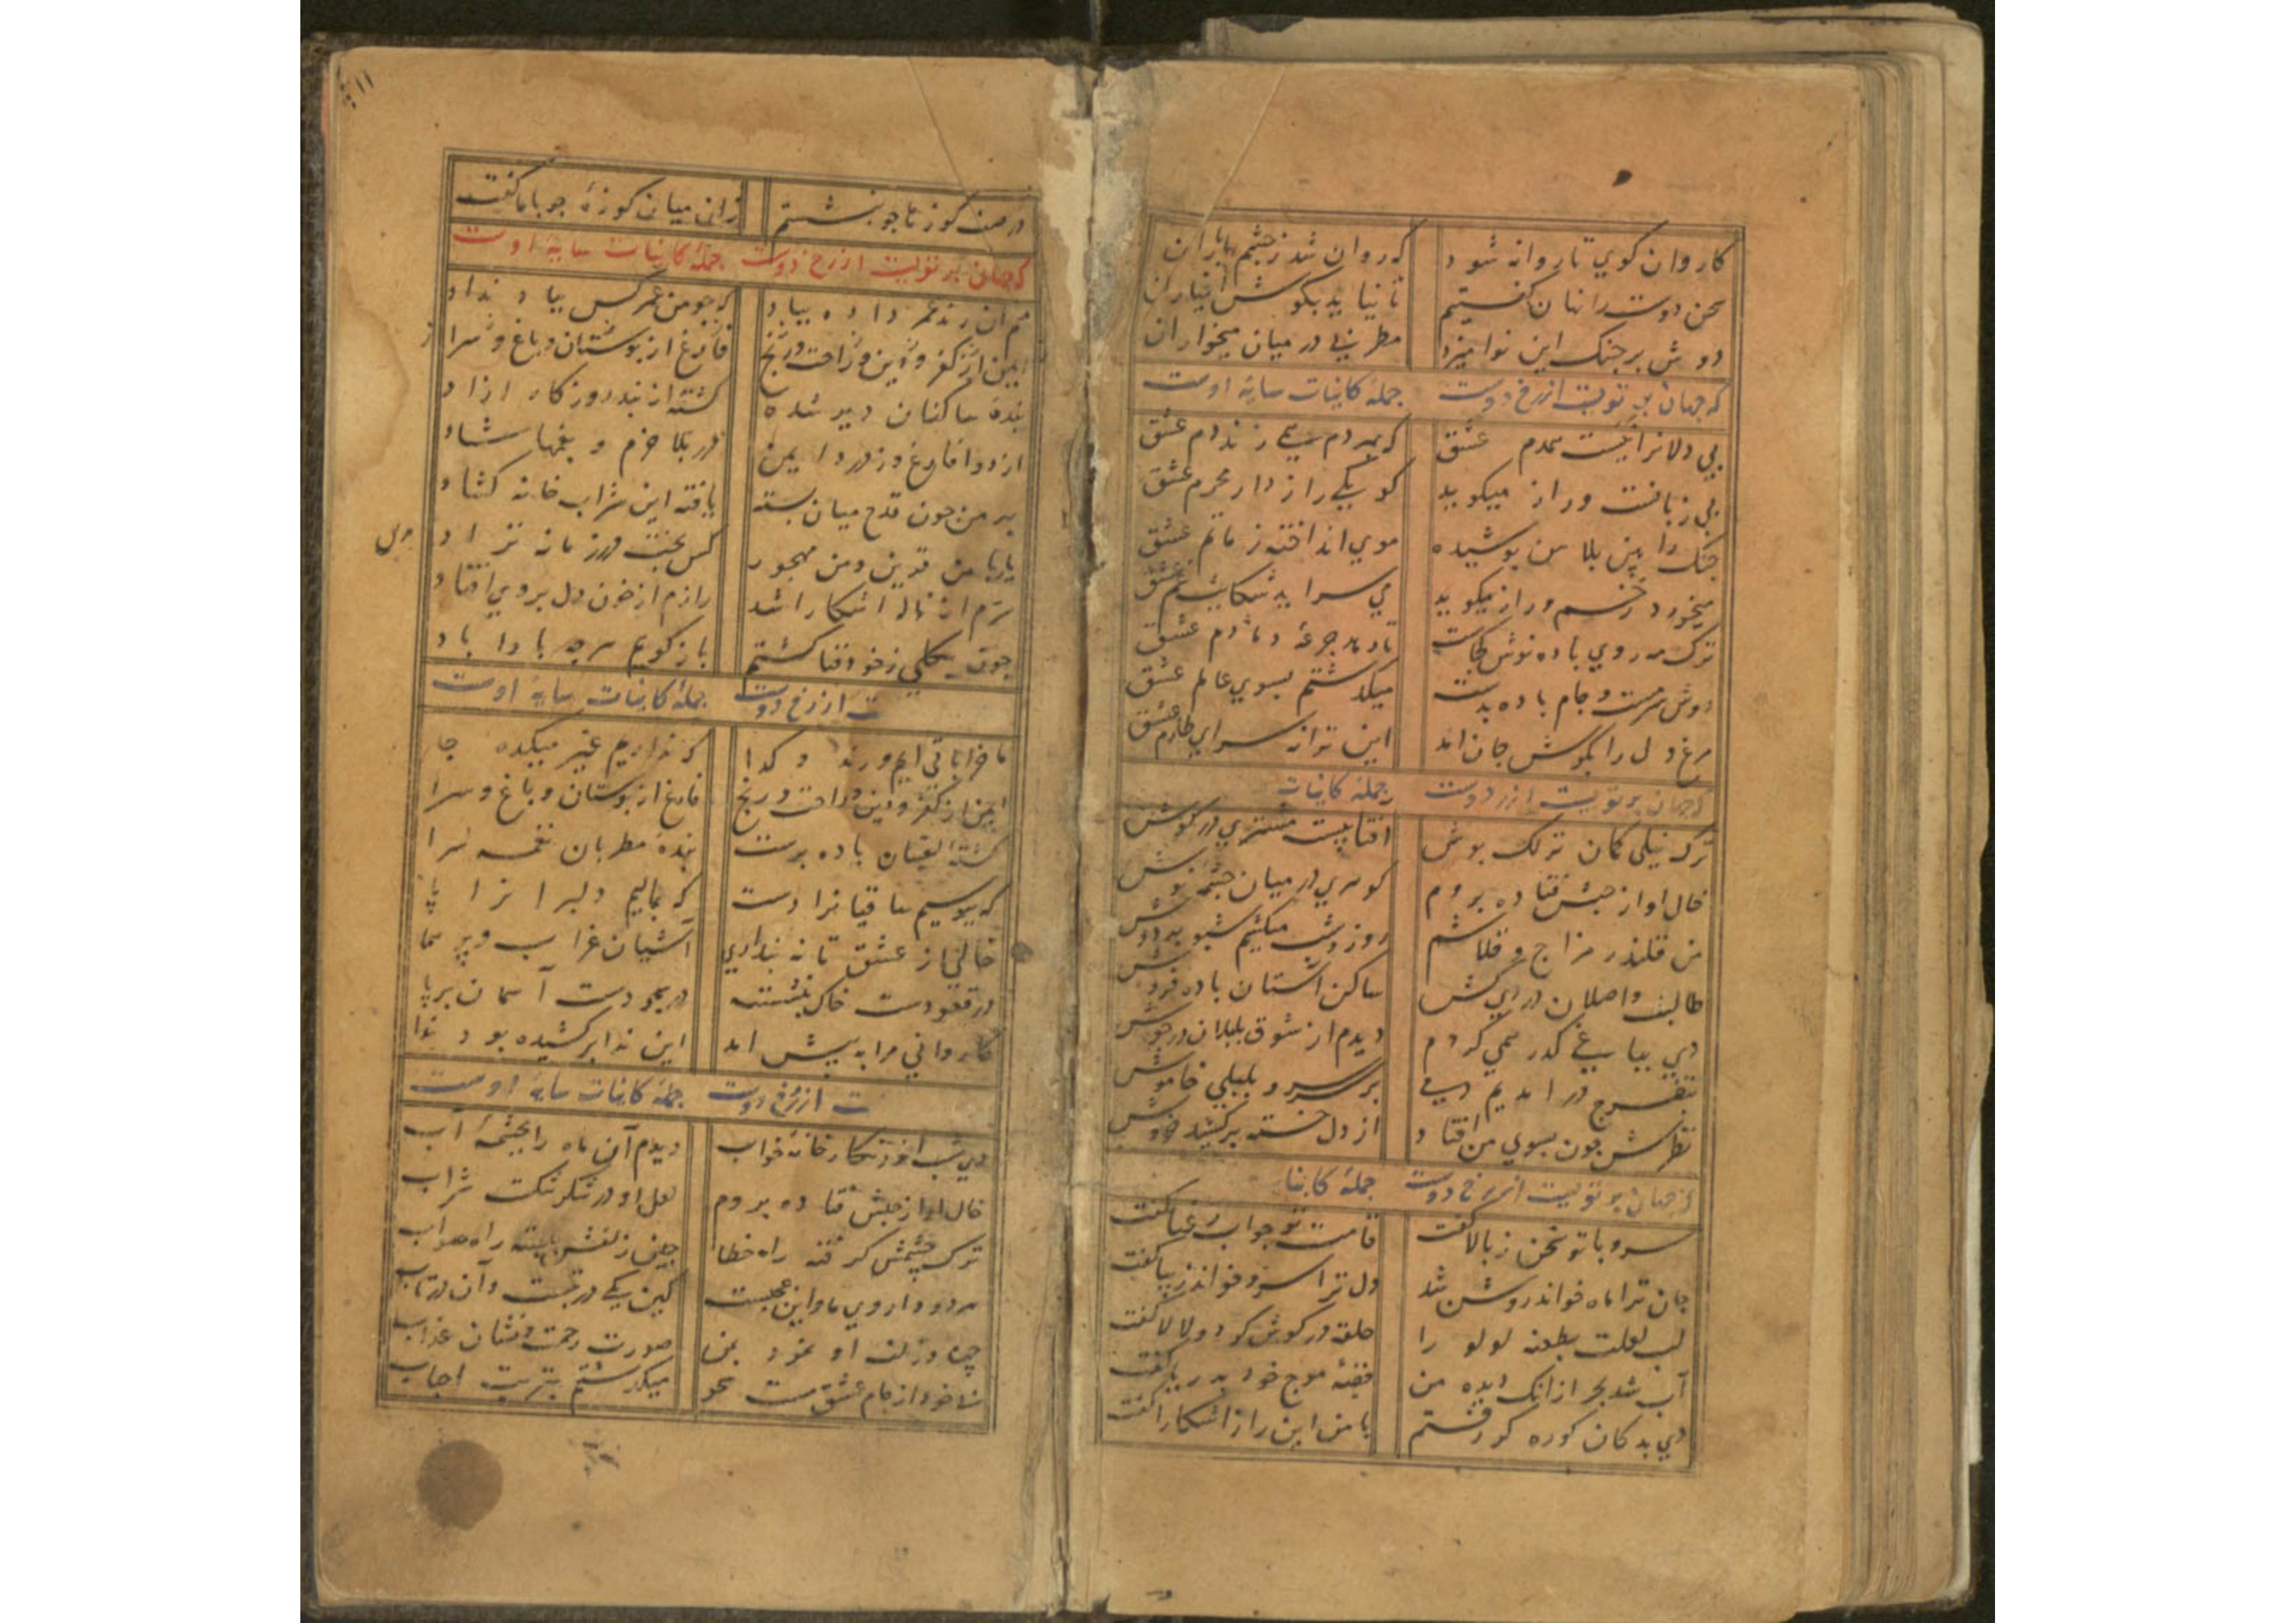 کاروان کوی تا روانه شود که روان شد ز چشم باران
سخن دوست را نهان کفتیم تا نیاید بکوش اغیاران
دوش بر چنک این نوا میزد مطربی در میان میخواران
که جهان پرتویست از رخ دوست جملهٔ کاینات سایهٔ اوست
بی دلانرا نیست همدم عشق که بهر دم نمی زند دم عشق
بی زبانست و راز میکوید کو یکی رازدار محرم عشق
چنک را بین پلاس پوشیده موی انداخته ز ماتم عشق
میخورد زخم و راز میکوید می سراید شکایت غم عشق
ترک مه روی باده نوش کجاست تا دهد جرعهٔ دمادم عشق
دوش سرمست و جام باده بدست میکذشتم بسوی عالم عشق
مرغ دل را بکوش جان آمد این ترانه سرای طارم عشق
که جهان پرتویست از رخ دوست جملهٔ کاینات
ترک نیلی کمان ترلک پوش افتابیست مشتری در کوش
خال او از حبش فتاده بروم کوهری در میان چشمهٔ نوش
من قلندر مزاج و قلاشم روز و شب میکشم سبو بر دوش
طالب واصلان دردی کش ساکن آستان باده فروش
دی بباغی کذر همی کردم دیدم از شوق بلبلان در جوش
بتفرج در امدیم دمی بر سر سرو بلبلی خاموش
نظرش چون بسوی من افتاد از دل خسته برکشید خروش
که جهان پرتویست از رخ دوست جملهٔ کاینا
سرو با تو سخن ز بالا کفت قامت تو جواب رعنا کفت
جان ترا ماه خواند روشن شد دل ترا سرو خواند زیبا کفت
لب لعلت بطعنه لولو را حلقه در کوش کرد و لالا کفت
آب شد بحر ازانک دیده من قصهٔ موج خود بدریا کفت
دی بدکان کوزه کر رفتم با من این راز آشکارا کفت
در صف کوزها چو بنشستم زان میان کوزهٔ چو با ما کفت
که جهان پرتویست از رخ دوست جملهٔ کاینات سایهٔ اوست
منم آن رند عمر داده بباد که چو من عمر کس بباد نداد
ایمن از کفر و دین و راحت و رنج فارغ از بوستان و باغ و سرا
بندهٔ ساکنان دیر شده کشته از بند روزکار ازاد
از دوا فارغ و ز درد ایمن در بلا خرم و بغمها شاد
بر من چون قدح میان بسته یافته این شراب خانه کشاد
یار با من قرین و من مهجور کس بختت در زمانه نزاد
سرم از ناله اشکارا شد رازم از خون دل بروی افتاد
چون بکلی ز خود فنا کشتم باز کویم هر چه بادا باد
ت از رخ دوست جملهٔ کاینات سایهٔ اوست
ما خراباتی ایم و رند و کدا که نداریم غیر میکده جا
ایمن از کفر و دین و راحت و رنج فارغ از بوستان و باغ و سرا
کشته لعبتان باده پرست بندهٔ مطربان نغمه سرا
که ببوسیم ساقیانرا دست که بمالیم دلبرانرا پا
خالی از عشق تا نه پنداری آشیان غراب و پر هما
در قعودست خاک بنشسته در سجودست آسمان برپا
کاروانی مرا به پیش امد این ندا برکشیده بود ندا
ت از رخ دوست جملهٔ کاینات سایهٔ اوست
دی شب اندر نکارخانهٔ خواب دیدم آن ماه را بچشمهٔ آب
خال او از حبش فتاده بروم لعل او در شکر شکست شراب
ترک چشمش کرفته راه خطا چین زلفش ببسته راه صواب
هر دو دار روی ما و این عجبست کین یکی در تبست و آن در تاب
چهره و زلف او نمود بمن صورت رحمت و نشان عذاب
بی خود از جام عشق مست محو میکذشتم بتربت احباب